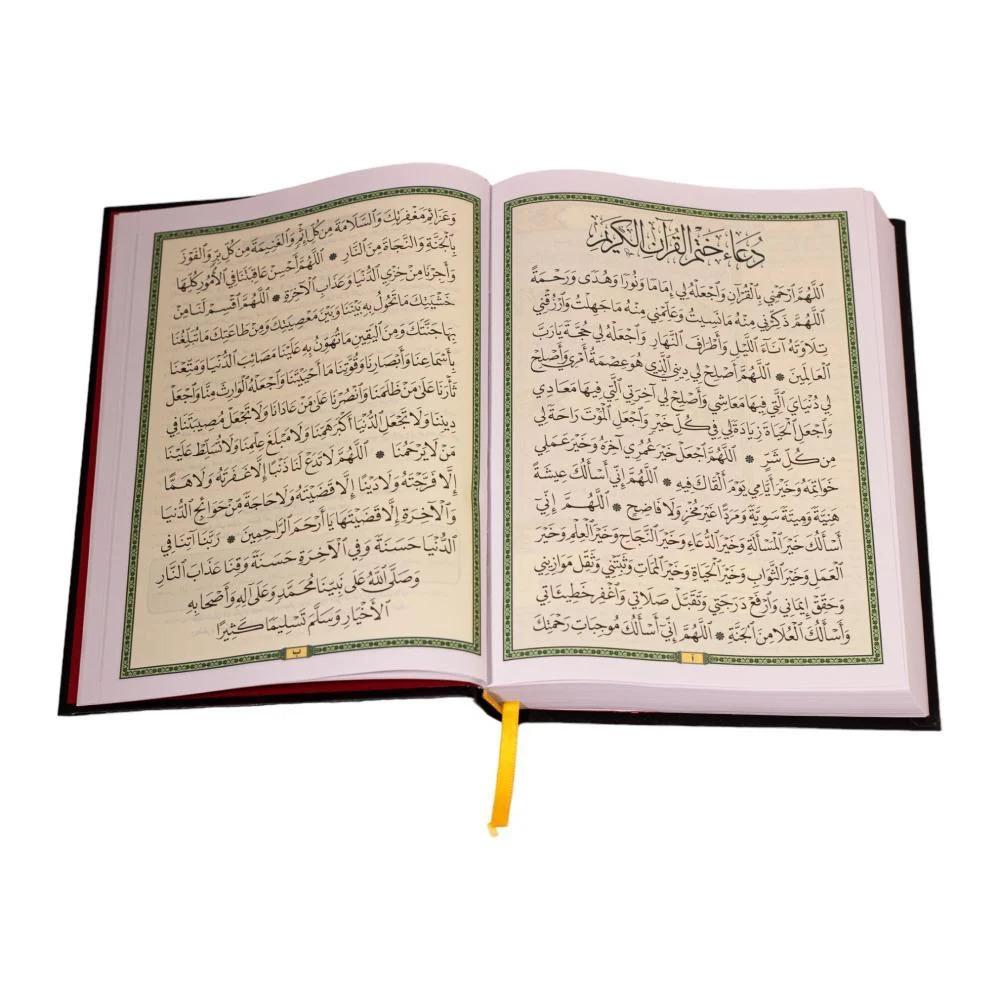 دُعَاءُ خَتْمِ الْقُرْآنِ الْكَرِيمِ
اَللَّهُمَّ ارْحَمْنِي بِالْقُرْآنِ وَاجْعَلْهُ لِي إِمَامًا وَنُورًا وَهُدًى وَرَحْمَةً
اَللَّهُمَّ ذَكِّرْنِي مِنْهُ مَا نَسِيتُ وَعَلِّمْنِي مِنْهُ مَا جَهِلْتُ وَارْزُقْنِي
تِلَاوَتَهُ آنَاءَ اللَّيْلِ وَأَطْرَافَ النَّهَارِ وَاجْعَلْهُ لِي حُجَّةً يَارَبَّ
الْعَالَمِينَ * اَللَّهُمَّ أَصْلِحْ لِي دِينِي الَّذِي هُوَ عِصْمَةُ أَمْرِي وَأَصْلِحْ
لِي دُنْيَايَ الَّتِي فِيهَا مَعَاشِي وَأَصْلِحْ لِي آخِرَتِي الَّتِي فِيهَا مَعَادِي
وَاجْعَلِ الْحَيَاةَ زِيَادَةً لِي فِي كُلِّ خَيْرٍ وَاجْعَلِ الْمَوْتَ رَاحَةً لِي
مِنْ كُلِّ شَرٍّ * اَللَّهُمَّ اجْعَلْ خَيْرَ عُمُرِي آخِرَهُ وَخَيْرَ عَمَلِي
خَوَاتِمَهُ وَخَيْرَ أَيَّامِي يَوْمَ أَلْقَاكَ فِيهِ * اَللَّهُمَّ إِنِّي أَسْأَلُكَ عِيشَةً
هَنِيَّةً وَمِيتَةً سَوِيَّةً وَمَرَدًّا غَيْرَ مُخْزٍ وَلَا فَاضِحٍ * اَللَّهُمَّ إِنِّي
أَسْأَلُكَ خَيْرَ الْمَسْأَلَةِ وَخَيْرَ الدُّعَاءِ وَخَيْرَ النَّجَاحِ وَخَيْرَ الْعِلْمِ وَخَيْرَ
الْعَمَلِ وَخَيْرَ الثَّوَابِ وَخَيْرَ الْحَيَاةِ وَخَيْرَ الْمَمَاتِ وَثَبِّتْنِي وَثَقِّلْ مَوَازِينِي
وَحَقِّقْ إِيمَانِي وَارْفَعْ دَرَجَتِي وَتَقَبَّلْ صَلَاتِي وَاغْفِرْ خَطِيئَاتِي
وَأَسْأَلُكَ الْعُلَا مِنَ الْجَنَّةِ * اَللَّهُمَّ إِنِّي أَسْأَلُكَ مُوجِبَاتِ رَحْمَتِكَ
أ
وَعَزَائِمَ مَغْفِرَتِكَ وَالسَّلَامَةَ مِنْ كُلِّ إِثْمٍ وَالْغَنِيمَةَ مِنْ كُلِّ بِرٍّ وَالْفَوْزَ
بِالْجَنَّةِ وَالنَّجَاةَ مِنَ النَّارِ * اَللَّهُمَّ أَحْسِنْ عَاقِبَتَنَا فِي الْأُمُورِ كُلِّهَا
وَأَجِرْنَا مِنْ خِزْيِ الدُّنْيَا وَعَذَابِ الْآخِرَةِ * اَللَّهُمَّ اقْسِمْ لَنَا مِنْ
خَشْيَتِكَ مَا تَحُولُ بِهِ بَيْنَنَا وَبَيْنَ مَعْصِيَتِكَ وَمِنْ طَاعَتِكَ مَا تُبَلِّغُنَا
بِهَا جَنَّتَكَ وَمِنَ الْيَقِينِ مَا تُهَوِّنُ بِهِ عَلَيْنَا مَصَائِبَ الدُّنْيَا وَمَتِّعْنَا
بِأَسْمَاعِنَا وَأَبْصَارِنَا وَقُوَّتِنَا مَا أَحْيَيْتَنَا وَاجْعَلْهُ الْوَارِثَ مِنَّا وَاجْعَلْ
ثَأْرَنَا عَلَى مَنْ ظَلَمَنَا وَانْصُرْنَا عَلَى مَنْ عَادَانَا وَلَا تَجْعَلْ مُصِيبَتَنَا فِي
دِينِنَا وَلَا تَجْعَلِ الدُّنْيَا أَكْبَرَ هَمِّنَا وَلَا مَبْلَغَ عِلْمِنَا وَلَا تُسَلِّطْ عَلَيْنَا
مَنْ لَا يَرْحَمُنَا * اَللَّهُمَّ لَا تَدَعْ لَنَا ذَنْبًا إِلَّا غَفَرْتَهُ وَلَا هَمًّا
إِلَّا فَرَّجْتَهُ وَلَا دَيْنًا إِلَّا قَضَيْتَهُ وَلَا حَاجَةً مِنْ حَوَائِجِ الدُّنْيَا
وَالْآخِرَةِ إِلَّا قَضَيْتَهَا يَا أَرْحَمَ الرَّاحِمِينَ * رَبَّنَا آتِنَا فِي
الدُّنْيَا حَسَنَةً وَفِي الْآخِرَةِ حَسَنَةً وَقِنَا عَذَابَ النَّارِ
وَصَلَّى اللَّهُ عَلَى نَبِيِّنَا مُحَمَّدٍ وَعَلَى آلِهِ وَأَصْحَابِهِ
الْأَخْيَارِ وَسَلَّمَ تَسْلِيمًا كَثِيرًا
ب